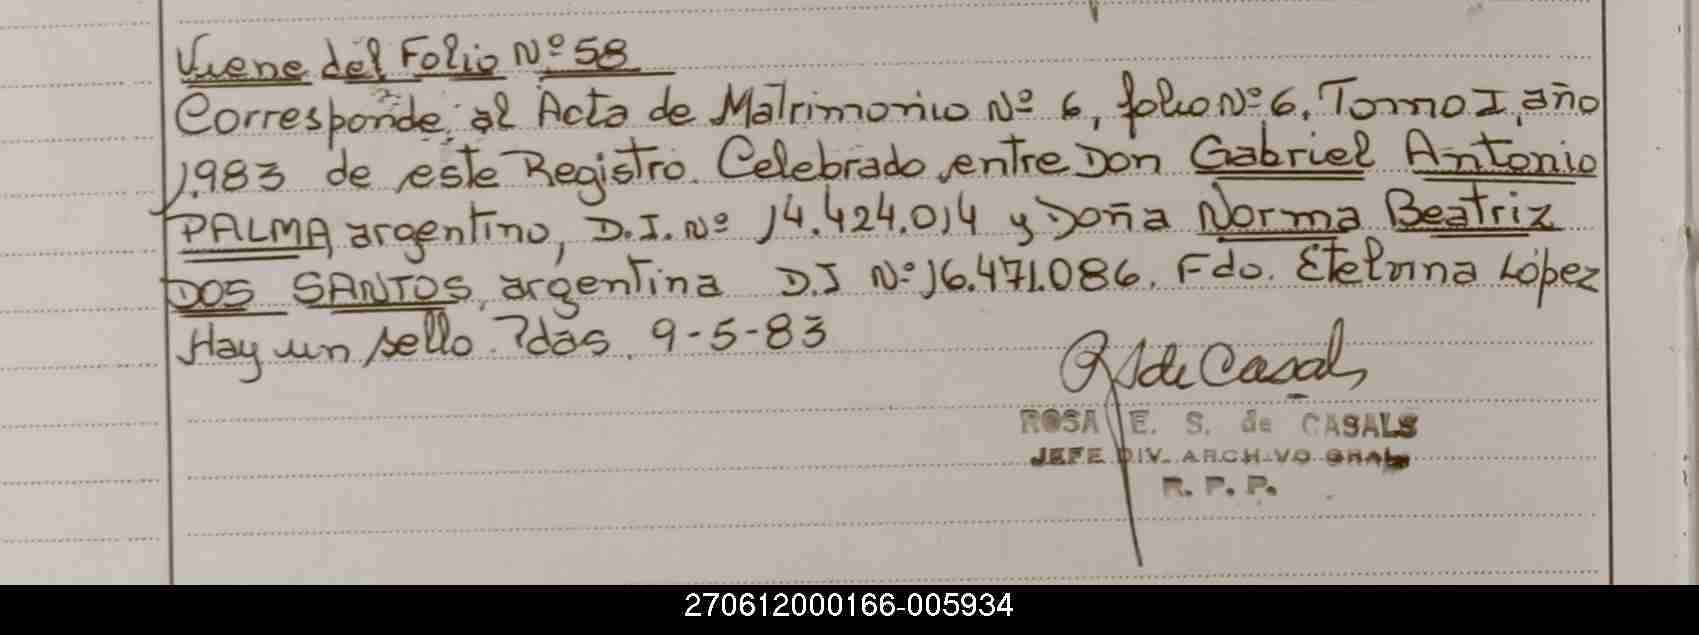 Viene del Folio Nº 58
Corresponde al Acta de Matrimonio Nº 6, folio Nº 6. Tomo I, año
1.983 de este Registro. Celebrado entre Don Gabriel Antonio
PALMA, argentino, D.I. Nº 14.424.014 y Doña Norma Beatriz
DOS SANTOS, argentina D.I Nº 16.471.086. Fdo. Etelvina López
Hay un sello. Pdas. 9-5-83
R S de Casals
ROSA E. S. de CASALS
JEFE DIV. ARCHIVO GRAL
R. P. P.
270612000166-005934